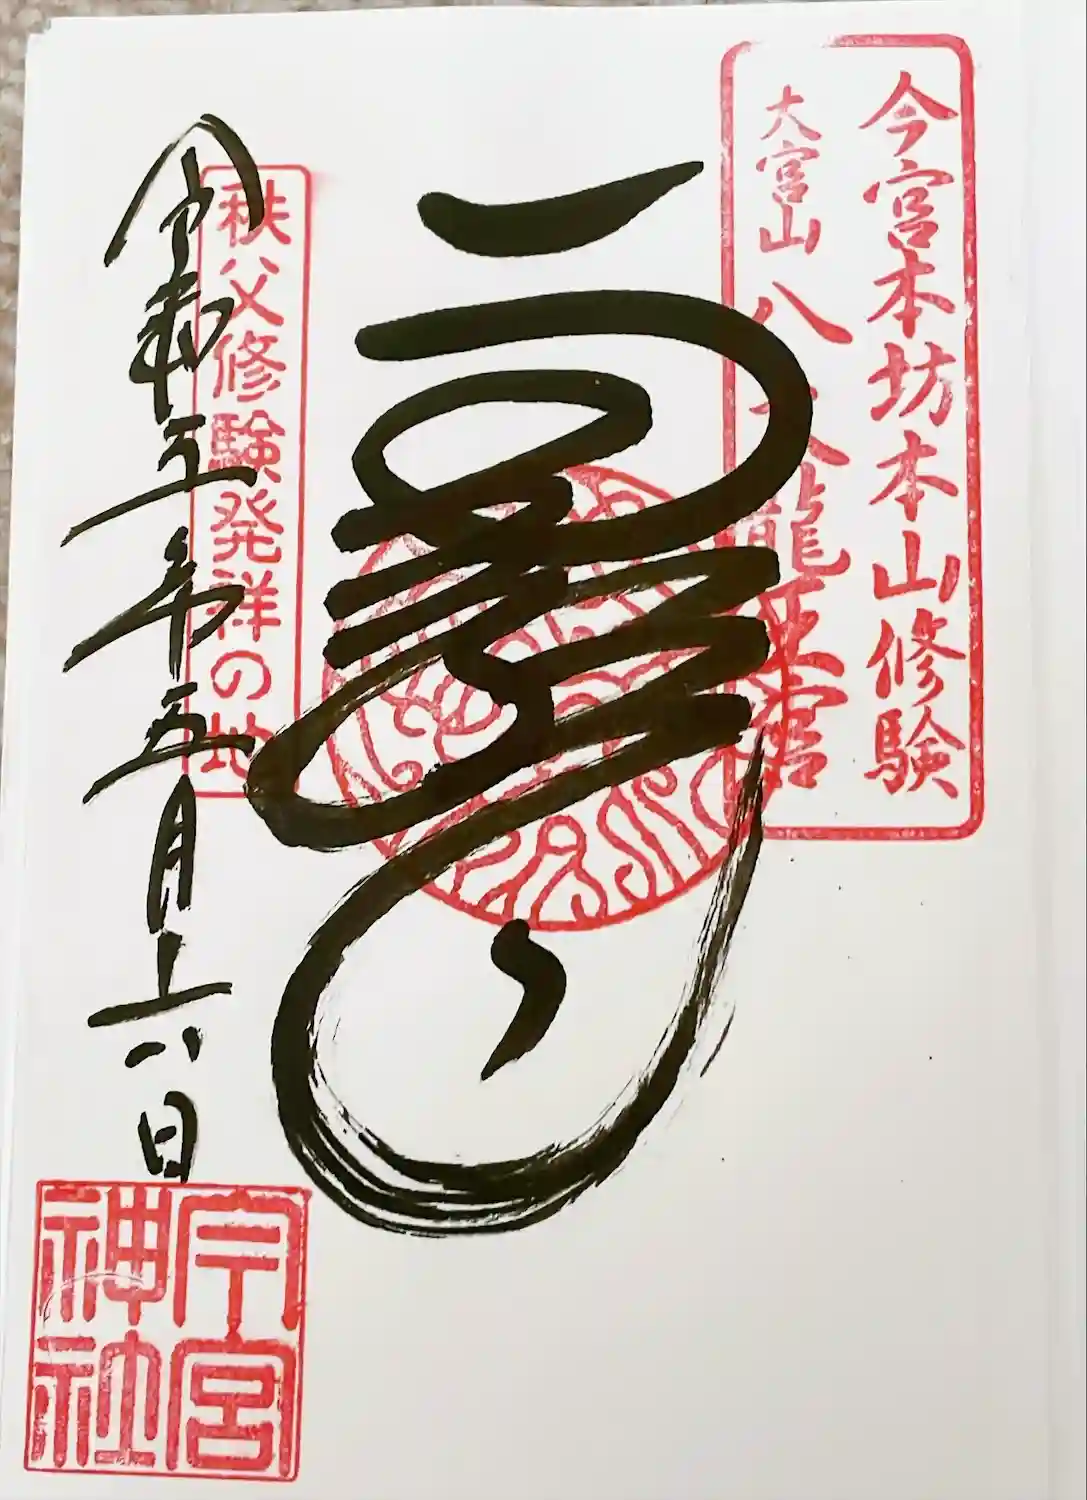 今宮本坊本山修験
大宮山 八大龍王宮
秩父修験発祥の地
令和五年五月十八日
今宮
神社